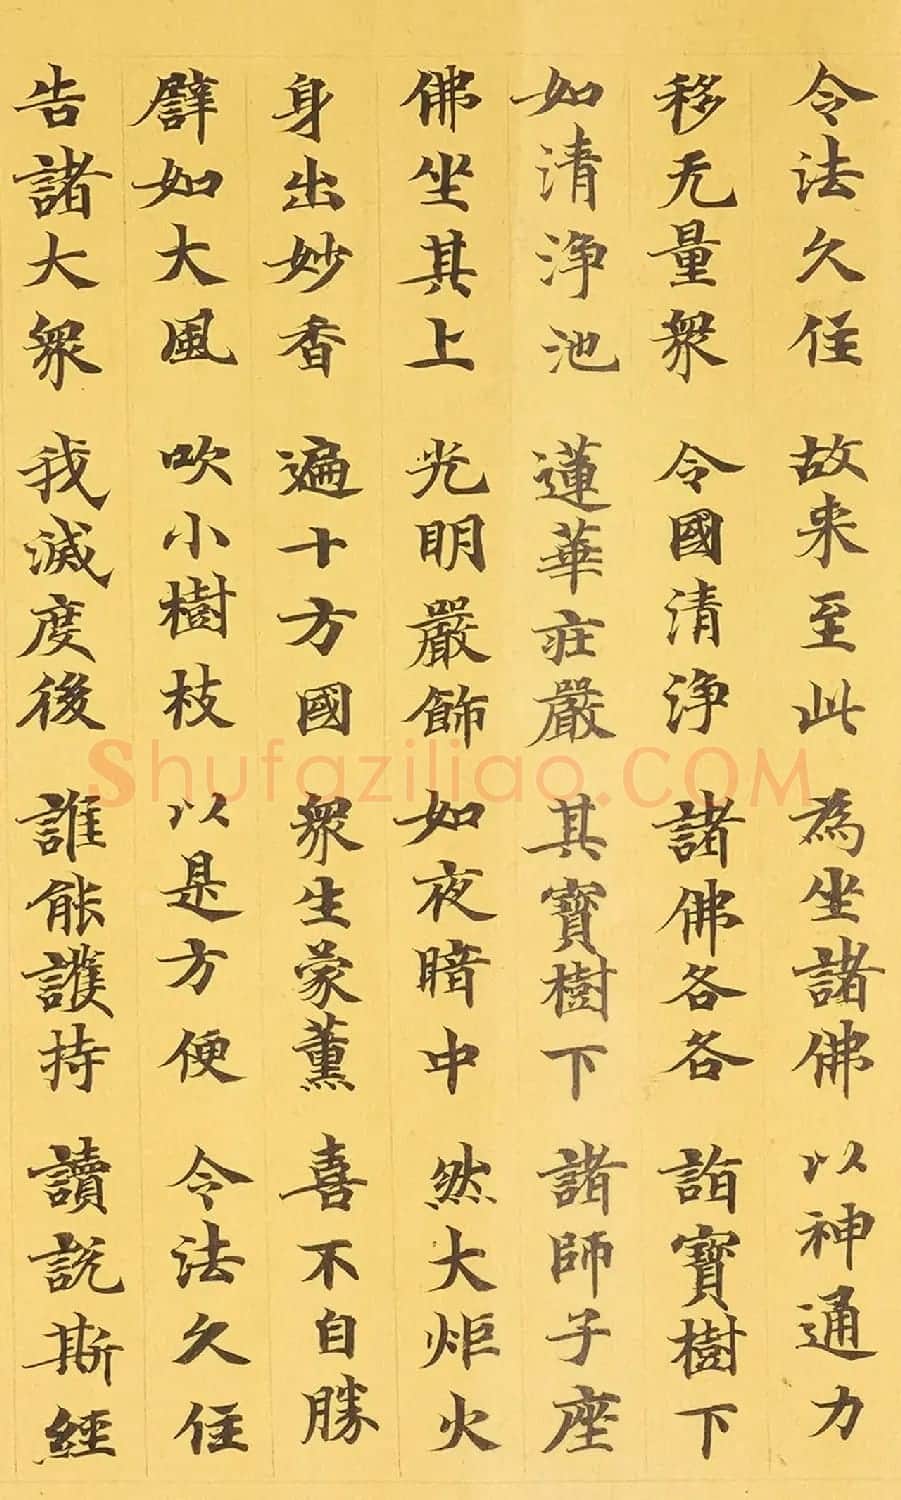 令法久住 故来至此 為坐諸佛 以神通力
移无量衆 令國清淨 諸佛各各 詣寶樹下
如清淨池 蓮華莊嚴 其寶樹下 諸師子座
佛坐其上 光明嚴飾 如夜暗中 然大炬火
身出妙香 遍十方國 衆生蒙薰 喜不自勝
譬如大風 吹小樹枝 以是方便 令法久住
告諸大衆 我滅度後 誰能護持 讀說斯經
Shufaziliao.COM